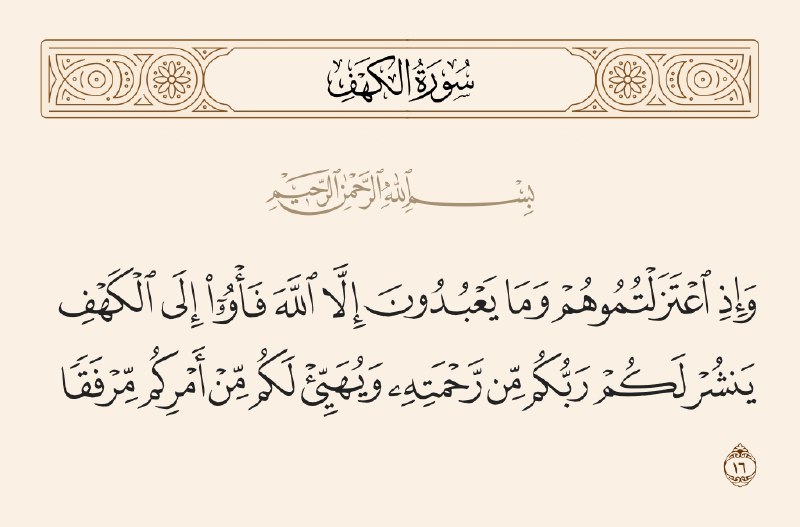 سُورَةُ الكَهْفِ
بِسْمِ ٱللَّهِ ٱلرَّحْمَٰنِ ٱلرَّحِيمِ
وَإِذِ ٱعْتَزَلْتُمُوهُمْ وَمَا يَعْبُدُونَ إِلَّا ٱللَّهَ فَأْوُۥٓا۟ إِلَى ٱلْكَهْفِ
يَنشُرْ لَكُمْ رَبُّكُم مِّن رَّحْمَتِهِۦ وَيُهَيِّئْ لَكُم مِّنْ أَمْرِكُم مِّرْفَقًا
١٦